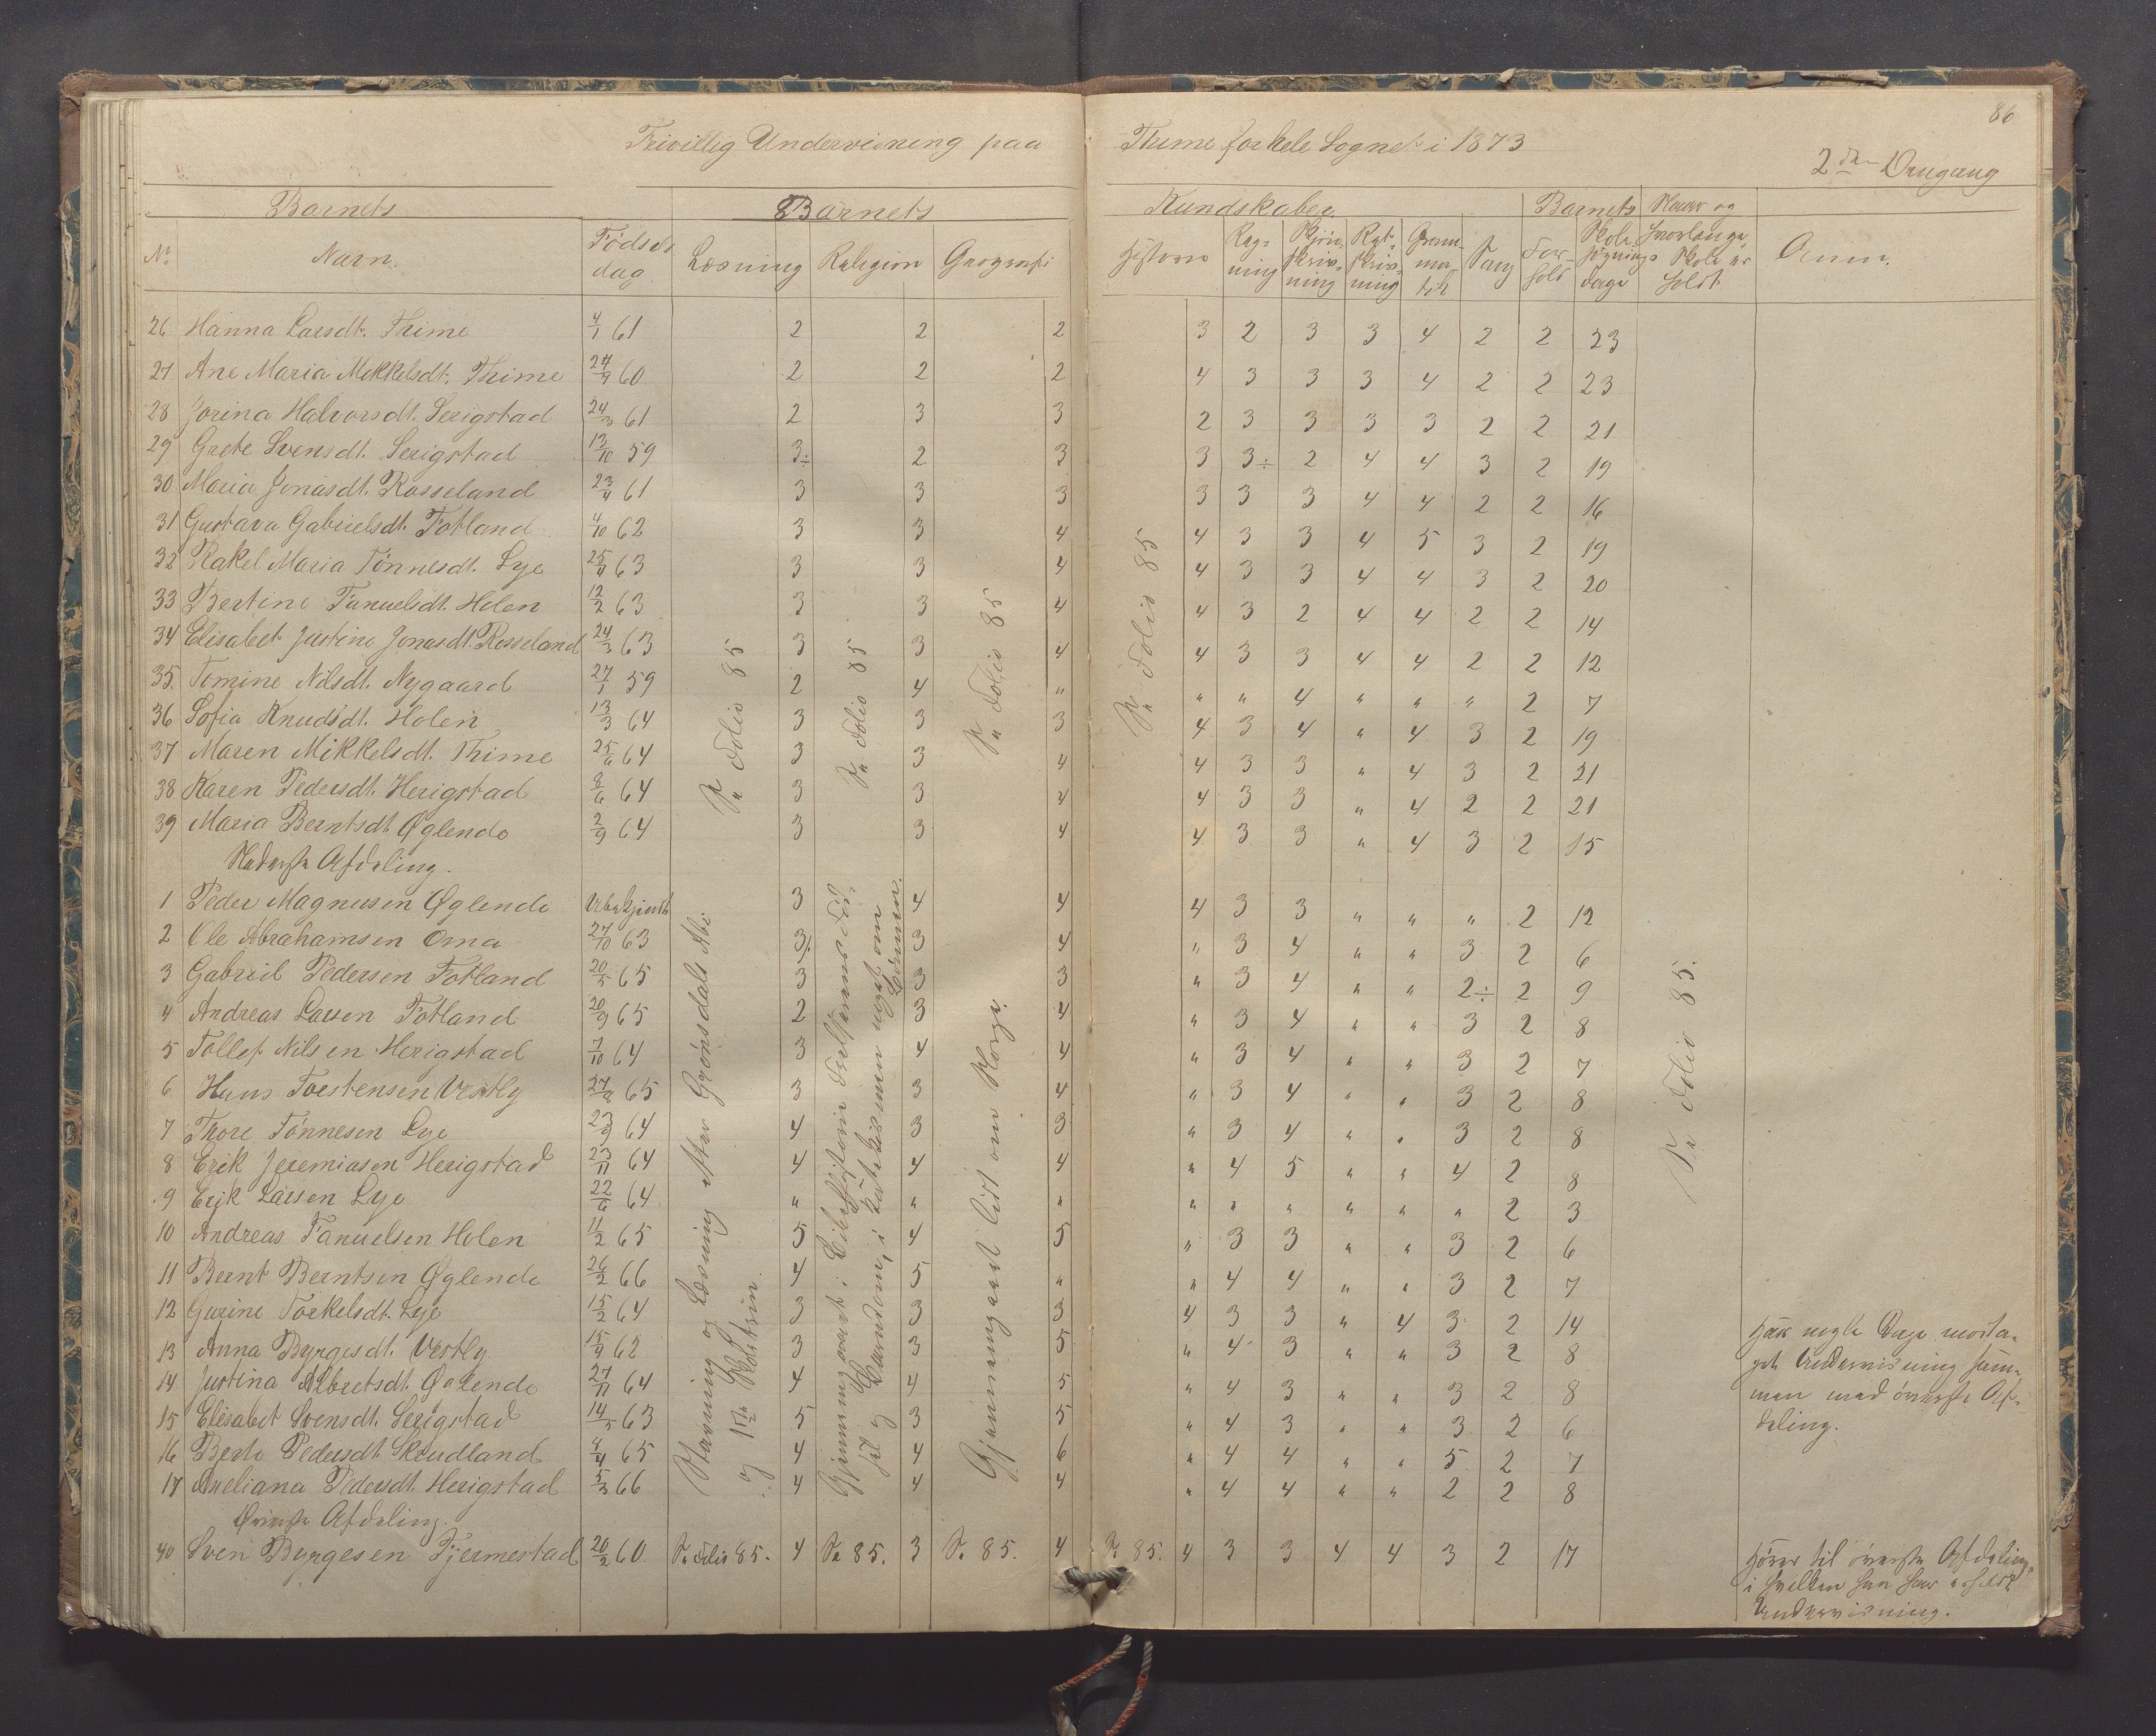 86
Frivillig Undervisning paa Thime for hele Sognet i 1873
2den Omgang
Barnets Barnets Kundskaber Barnets
No Navn. Fødselsdag Læsning Religion Geografi Historie Regning Skjönskrivning Retskrivning Grammatik Sang Forhold Skolesøgningsdage Naar og hvorlænge Skole er holdt Anm.
26 Hanna Larsdt. Thime 4/1 61 2 2 2 3 2 3 3 4 2 2 23
27 Ane Maria Mikkelsdt. Thime 24/9 60 2 2 2 4 3 3 3 4 2 2 23
28 Jorina Halvorsdt. Serigstad 24/3 61 2 3 3 2 3 3 3 3 2 2 21
29 Grete Svensdt. Serigstad 13/10 59 3÷ 2 3 3 3÷ 2 4 4 3 2 19
30 Maria Jonasdt. Rosseland 23/4 61 3 3 3 3 3 3 4 4 2 2 16
31 Gustava Gabrielsdt. Fotland 4/10 62 3 3 4 4 3 3 4 5 3 2 19
32 Rakel Maria Tönnesdt. Lye 25/4 63 3 3 4 4 3 3 4 4 3 2 20
33 Bertine Tanuelsdt. Holen 12/2 63 3 3 4 4 3 2 4 4 2 2 14
34 Elisabet Justine Jonasdt. Rosseland 24/3 63 3 3 4 4 3 3 4 4 2 2 12
35. Tomine Nilsdt. Nygaard 27/1 59 2 4 " " " 4 " " " 2 7
36 Sofia Knudsdt. Holen 13/3 64 3 3 3 4 3 4 " 4 3 2 19
37 Maren Mikkelsdt. Thime 25/6 64 3 3 4 4 3 3 " 4 3 2 21
38 Karen Pedersdt. Herigstad 8/6 64 3 3 4 4 3 3 " 4 2 2 21
39 Maria Berntsdt. Øglende 2/9 64 3 3 4 4 3 3 " 4 3 2 15
Se Folio 85
Se Folio 85
Se Folio 85
Se Folio 85
Nederste Afdeling.
1 Peder Magnusen Øglende Ubekjendt 3 4 4 4 3 3 " " " 2 12
2 Ole Abrahamsen Oma 27/10 63 3 3 4 " 3 4 " " 3 2 6
3 Gabriel Pedersen Fotland 20/5 65 3 3 3 " 3 4 " " 2÷ 2 9
4 Andreas Larsen Fotland 20/9 65 2 3 4 " 3 4 " " 3 2 8
5 Tollef Nilsen Herigstad 7/10 64 3 4 4 " 3 4 " " 3 2 7
6 Hans Torstensen Vestly 27/8 65 3 3 4 " 3 4 " " 3 2 8
7 Thore Tönnesen Lye 23/9 64 4 3 3 " 3 4 " " 3 2 8
8 Erik Jeremiasen Herigstad 23/11 64 4 4 4 " 4 5 " " 4 2 8
9 Erik Larsen Lye 22/6 64 " " " " " " " " " 2 3
10 Andreas Tanuelsen Holen 11/2 65 5 4 5 " 3 3 " " 3 2 6
11 Bernt Berntsen Øglende 26/2 66 4 5 " " 4 4 " " 3 2 7
12 Gurine Torkelsdt. Lye 15/2 64 3 3 3 4 3 3 " 4 3 2 14
13 Anna Byrgesdt. Vestly 15/4 62 3 3 5 " 4 3 " " 3 2 8
14 Justina Albretsdt. Øglende 27/11 64 4 4 5 " 4 3 " " 3 2 8
15 Elisabet Svensdt. Serigstad 14/5 63 5 3 5 " 4 3 " " 3 2 6
16 Berte Pedersdt. Skrudland 4/4 65 4 4 6 " 4 4 " " 5 2 7
17 Aneliana Pedersdt. Herigstad 5/3 66 4 4 4 " 4 4 " " 2 2 8
Stavning og Læsning efter Grönsdals Abc
Gjennemgaaet lidt om Norge.
Se Folio 85.
Har nogle Dage modta-
get Undervisning sam-
men med överste Af-
deling.
Øverste Afdeling.
40 Sven Byrgesen Fjermestad 20/2 60 Se Folio 85. 4 Se 85. 3 Se 85. 4 Se 85. 4 3 3 4 4 3 2 17
Hörer til överste Afdeling,
i hvilken han har erholdt
Undervisning.